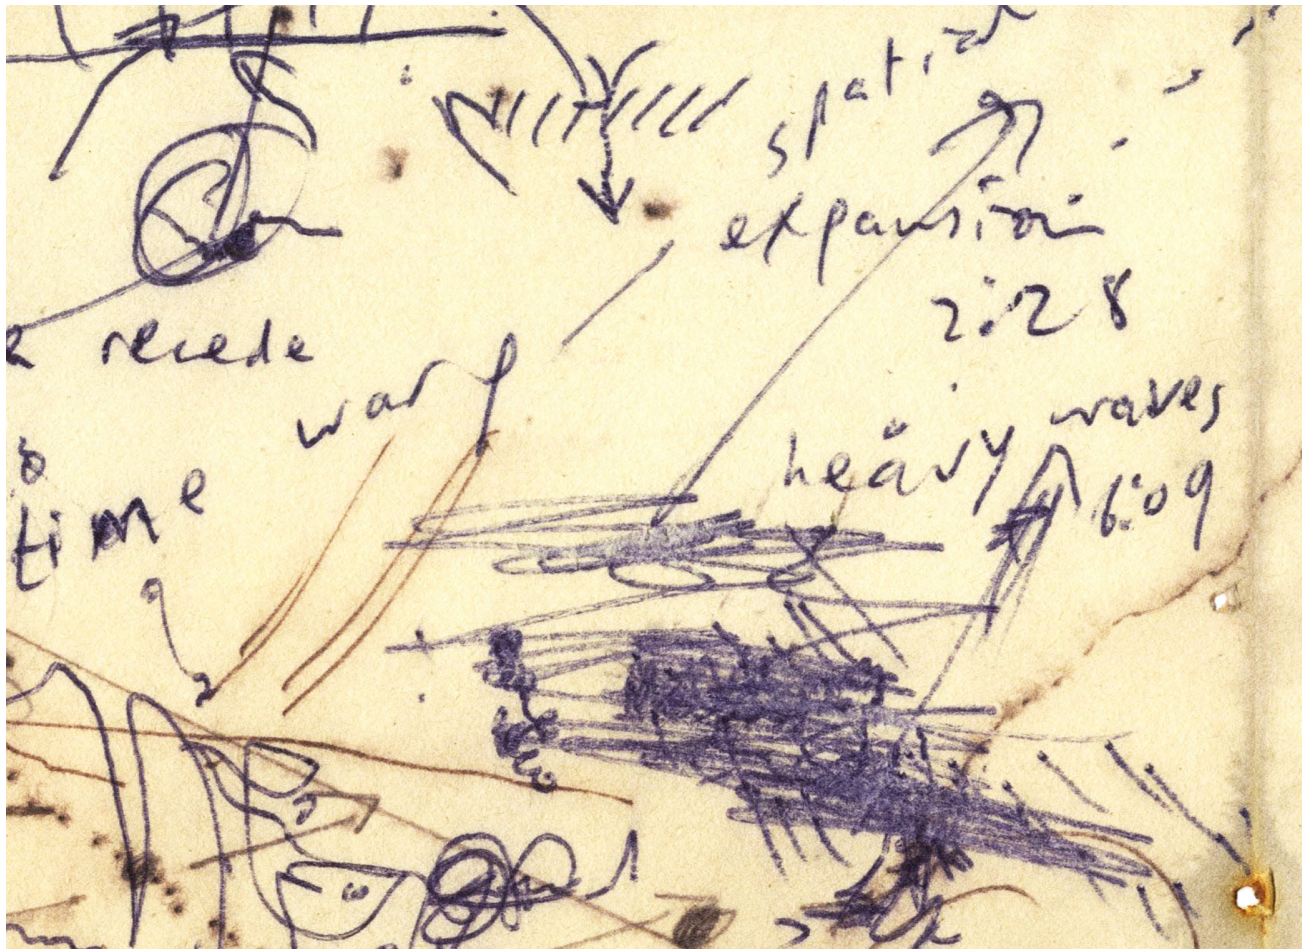 spatial
expansion
2:28
recede
warp
heavy waves
6:09
time